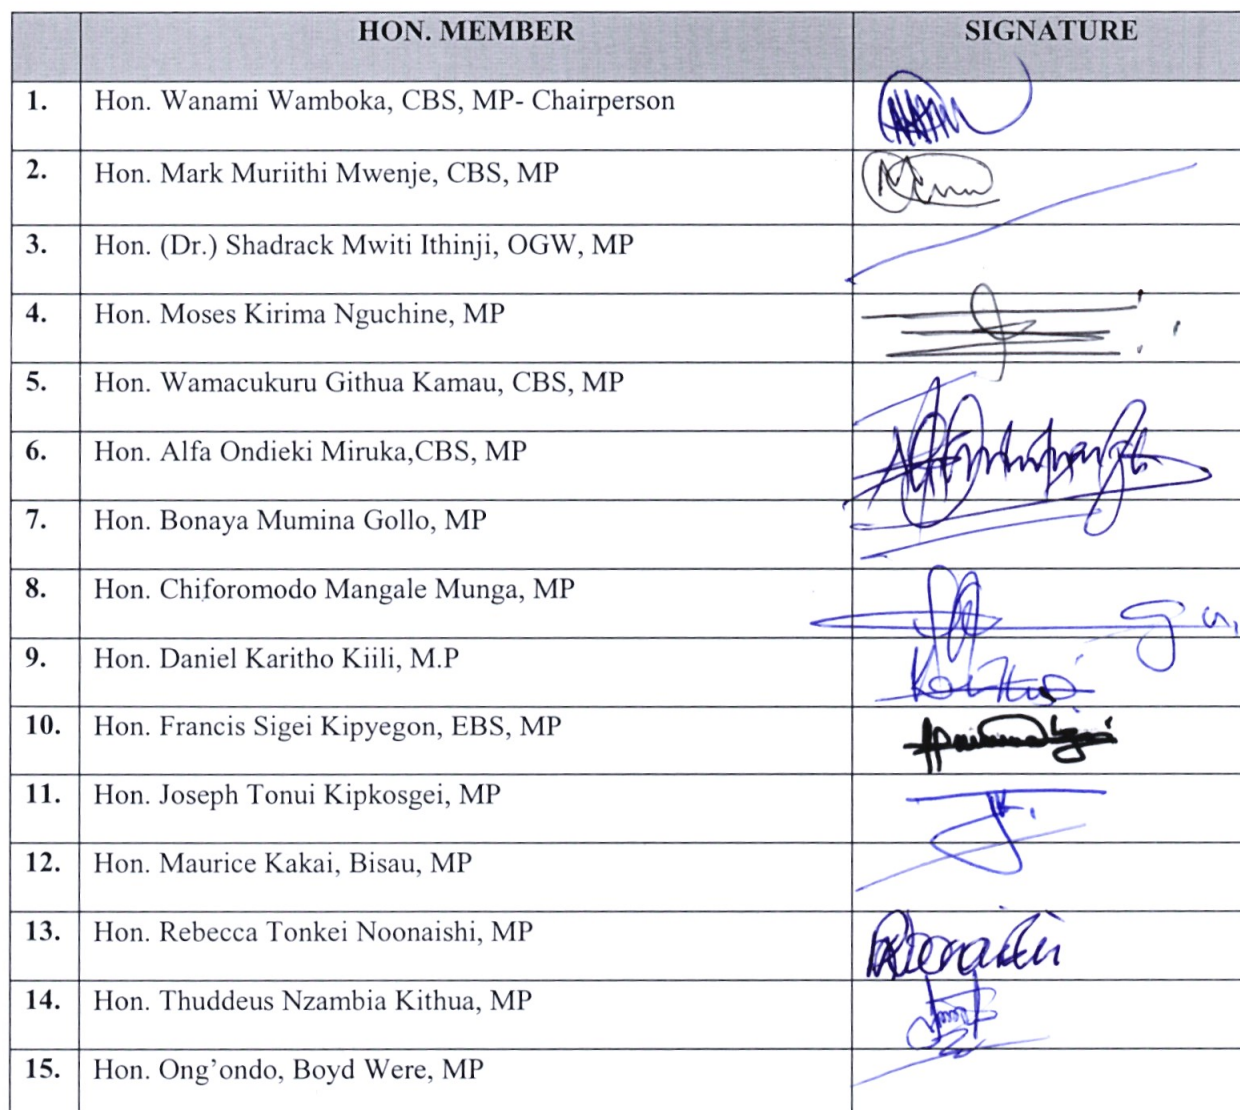 HON. MEMBER SIGNATURE
1. Hon. Wanami Wamboka, CBS, MP- Chairperson
2. Hon. Mark Muriithi Mwenje, CBS, MP
3. Hon. (Dr.) Shadrack Mwiti Ithinji, OGW, MP
4. Hon. Moses Kirima Nguchine, MP
5. Hon. Wamacukuru Githua Kamau, CBS, MP
6. Hon. Alfa Ondieki Miruka,CBS, MP
7. Hon. Bonaya Mumina Gollo, MP
8. Hon. Chiforomodo Mangale Munga, MP
9. Hon. Daniel Karitho Kiili, M.P
10. Hon. Francis Sigei Kipyegon, EBS, MP
11. Hon. Joseph Tonui Kipkosgei, MP
12. Hon. Maurice Kakai, Bisau, MP
13. Hon. Rebecca Tonkei Noonaishi, MP
14. Hon. Thuddeus Nzambia Kithua, MP
15. Hon. Ong’ondo, Boyd Were, MP